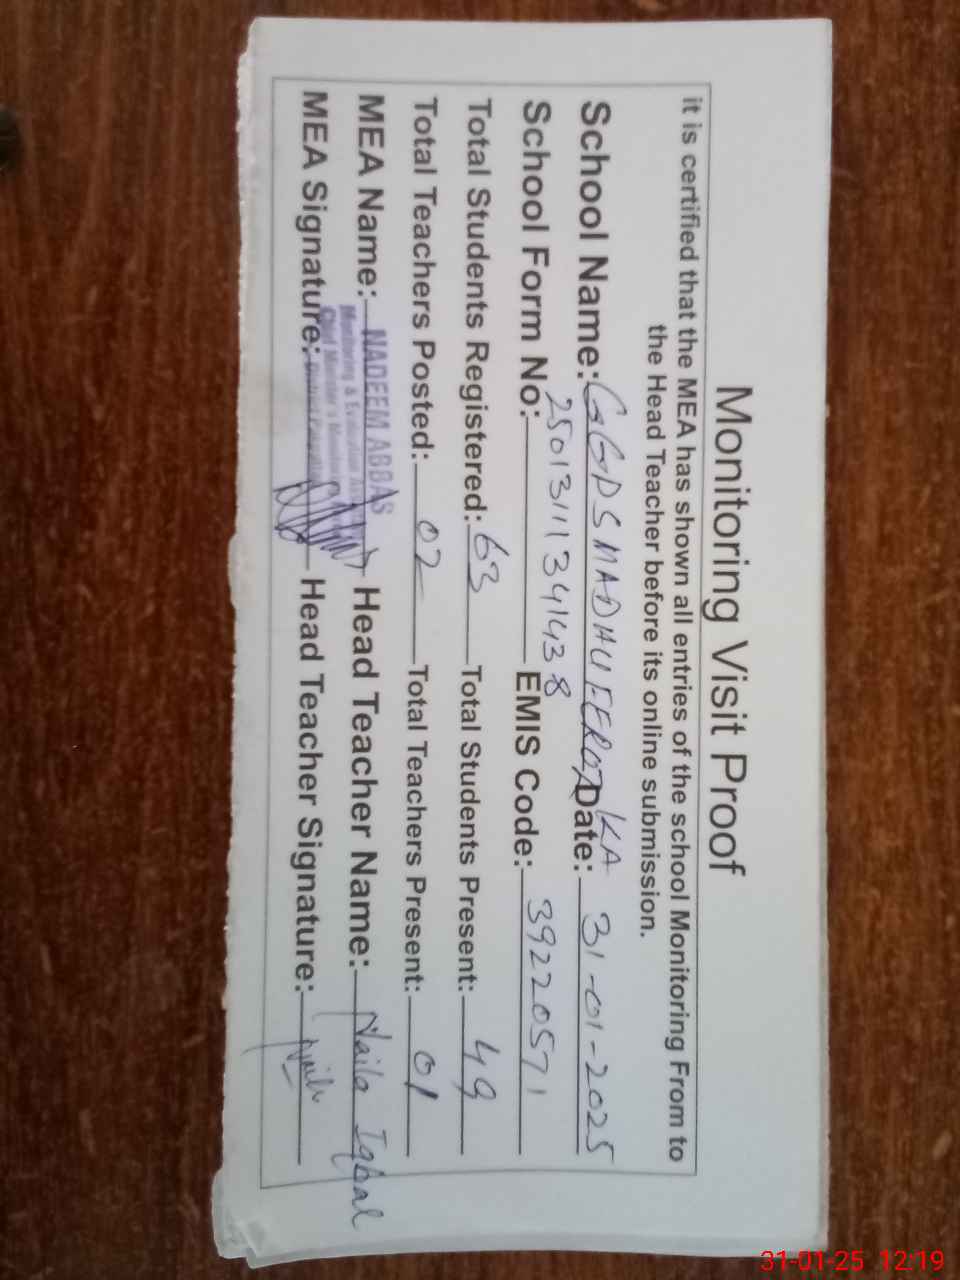 Monitoring Visit Proof
it is certified that the MEA has shown all entries of the school Monitoring From to
the Head Teacher before its online submission.
School Name: GGPS MADHU FEROZ KA Date: 31-01-2025
School Form No: 25013111341438 EMIS Code: 39220571
Total Students Registered: 63 Total Students Present: 49
Total Teachers Posted: 02 Total Teachers Present: 01
MEA Name: NADEEM ABBAS Head Teacher Name: Naila Iqbal
Monitoring & Evaluation
Chief Minister's
MEA Signature: Head Teacher Signature: Naila
31-01-25 12:19